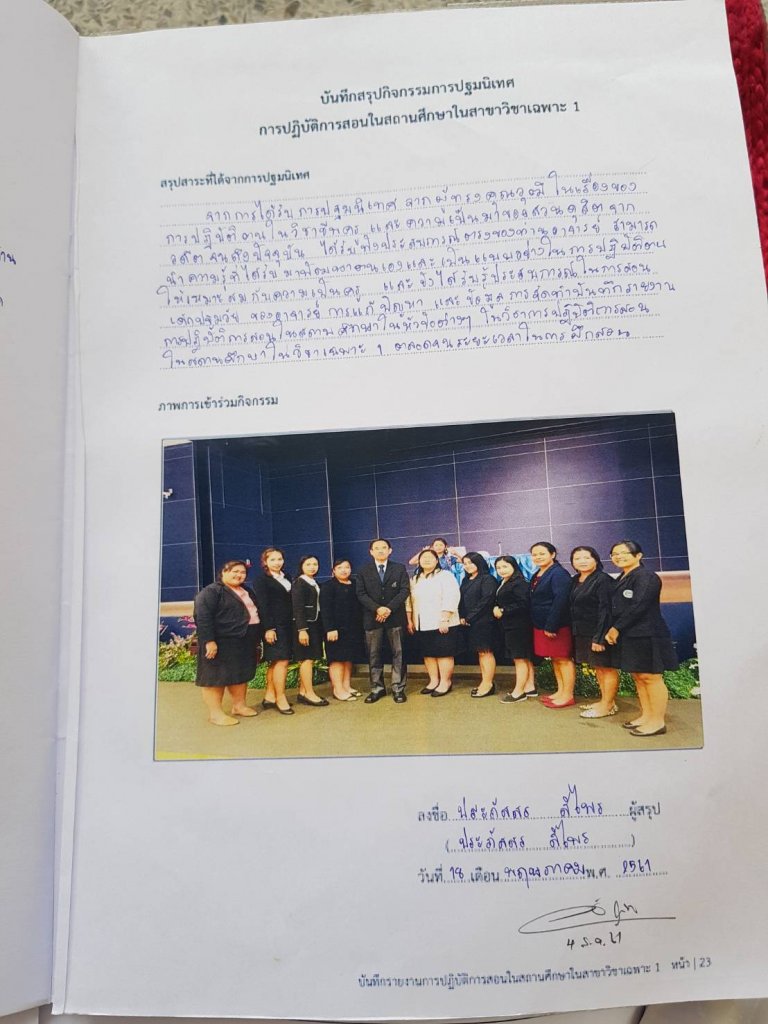 บันทึกสรุปกิจกรรมการปฐมนิเทศ
การปฏิบัติการสอนในสถานศึกษาในสาขาวิชาเฉพาะ 1
สรุปสาระที่ได้จากการปฐมนิเทศ
จากการได้รับการปฐมนิเทศ จากผู้ทรงคุณวุฒิ ในเรื่องของ
การปฏิบัติงานในวิชาชีพครู และความเป็นมาของสวนดุสิตจาก
อดีต จนถึงปัจจุบัน ได้รับฟังประสบการณ์ตรงของท่านอาจารย์ สามารถ
นำความรู้ที่ได้รับมาพัฒนาตนเองและเป็นแบบอย่างในการปฏิบัติตน
ให้เหมาะสมกับความเป็นครู และยังได้รับรู้ประสบการณ์ในการสอน
เด็กปฐมวัย ของอาจารย์ การแก้ปัญหา และข้อมูลการจัดทำบันทึกรายงาน
การปฏิบัติการสอนในสถานศึกษาในหัวข้อต่างๆ ในวิชาการปฏิบัติการสอน
ในสถานศึกษาในวิชาเฉพาะ 1 ตลอดจนระยะเวลาในการฝึกสอน
ภาพการเข้าร่วมกิจกรรม
ลงชื่อ ประภัสสร ผู้สรุป
( ประภัสสร )
วันที่ 18 เดือน พฤษภาคม พ.ศ. 2561
4 ธ.ค. 61
บันทึกรายงานการปฏิบัติการสอนในสถานศึกษาในสาขาวิชาเฉพาะ 1 หน้า | 23